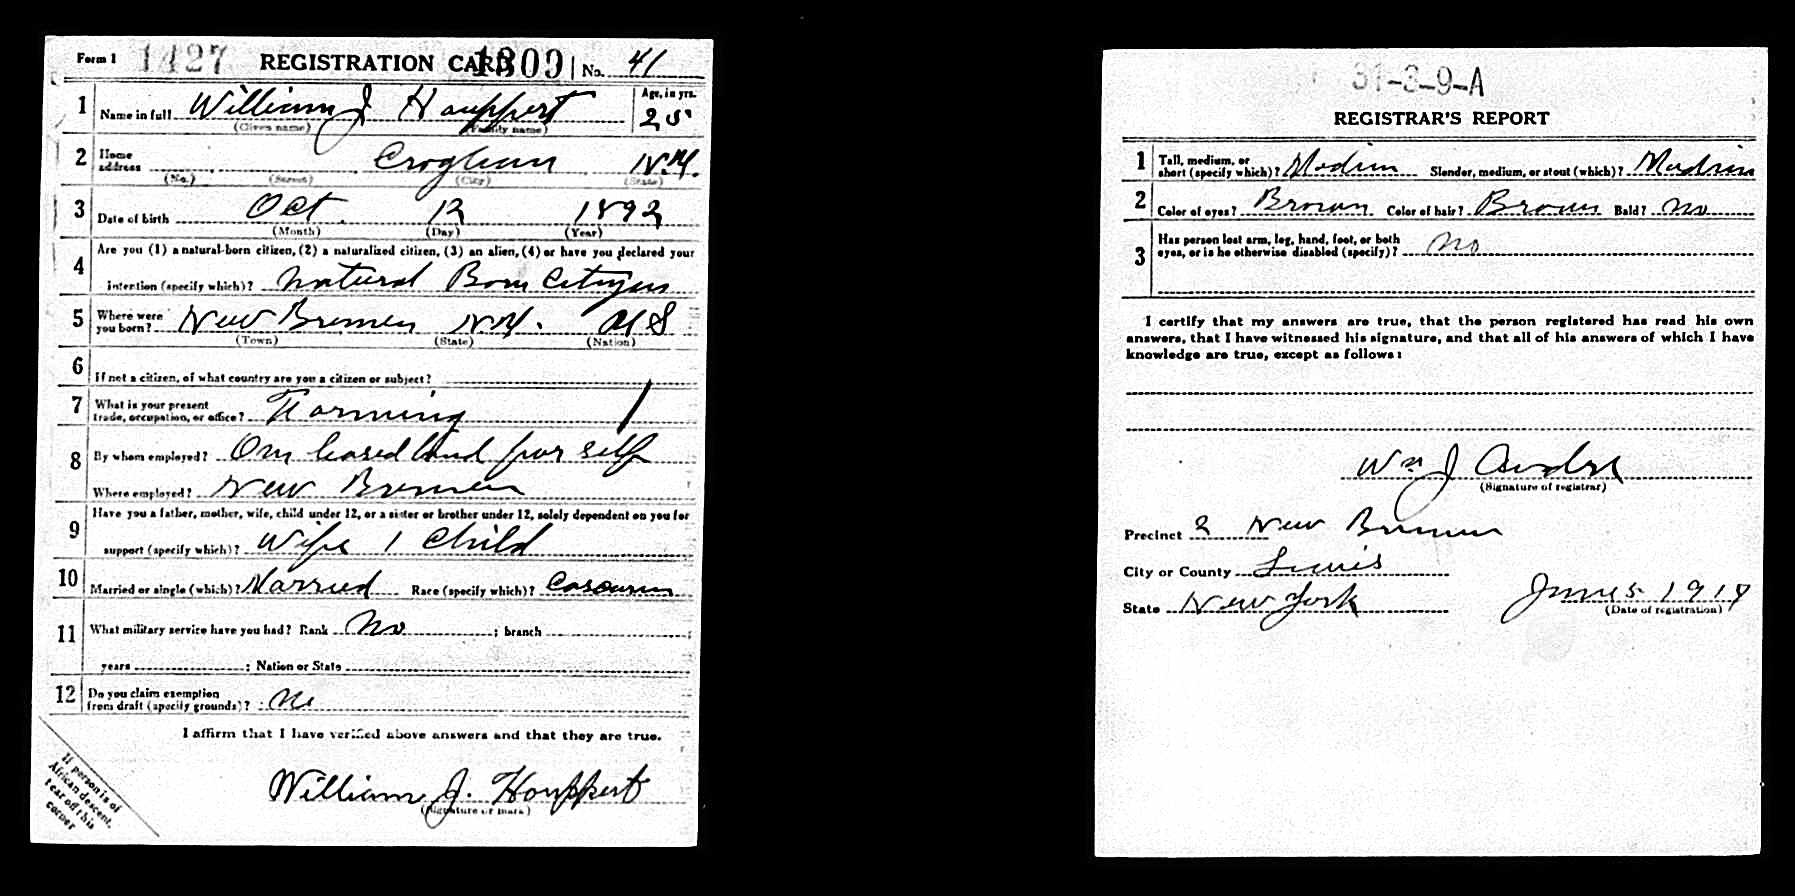 Form 1 1427 REGISTRATION CARD 1309 No. 41
1 Name in full William J Houppert Age, in yrs. 25
(Given name) (Family name)
2 Home address Croghan N.Y.
(No.) (Street) (City) (State)
3 Date of birth Oct. 12 1892
(Month) (Day) (Year)
4 Are you (1) a natural-born citizen, (2) a naturalized citizen, (3) an alien, (4) or have you declared your
intention (specify which)? Natural Born Citizen
5 Where were you born? New Bremen N.Y. U S
(Town) (State) (Nation)
6 If not a citizen, of what country are you a citizen or subject?
7 What is your present trade, occupation, or office? Farming
8 By whom employed? On leased land for self
Where employed? New Bremen
9 Have you a father, mother, wife, child under 12, or a sister or brother under 12, solely dependent on you for
support (specify which)? Wife 1 Child
10 Married or single (which)? Married Race (specify which)?
11 What military service have you had? Rank No ; branch ;
years ; Nation or State
12 Do you claim exemption from draft (specify grounds)? No
I affirm that I have verified above answers and that they are true.
William J. Houppert
(Signature or mark)
If person is of
African descent,
tear off this
corner
31-3-9-A
REGISTRAR'S REPORT
1 Tall, medium, or short (specify which)? Medium Slender, medium, or stout (which)? Medium
2 Color of eyes? Brown Color of hair? Brown Bald? No
3 Has person lost arm, leg, hand, foot, or both eyes, or is he otherwise disabled (specify)? No
I certify that my answers are true, that the person registered has read his own
answers, that I have witnessed his signature, and that all of his answers of which I have
knowledge are true, except as follows:
Wm J Andre
(Signature of registrar)
Precinct 2 New Bremen
City or County Lewis
State New York June 5 1917
(Date of registration)